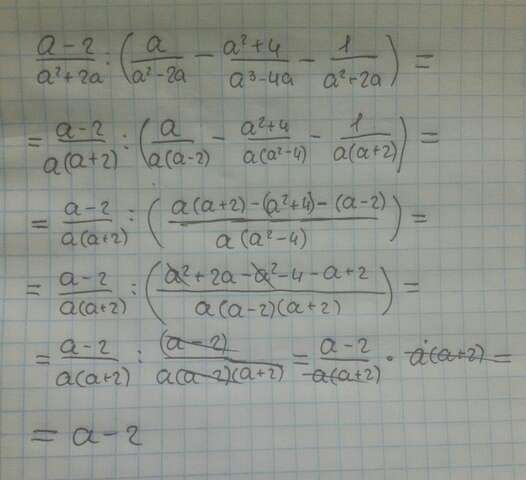 (a-2)/(a²+2a) : (a/(a²-2a) - (a²+4)/(a³-4a) - 1/(a²+2a)) =
= (a-2)/(a(a+2)) : (a/(a(a-2)) - (a²+4)/(a(a²-4)) - 1/(a(a+2))) =
= (a-2)/(a(a+2)) : ((a(a+2)-(a²+4)-(a-2))/(a(a²-4))) =
= (a-2)/(a(a+2)) : ((a²+2a-a²-4-a+2)/(a(a-2)(a+2))) =
= (a-2)/(a(a+2)) : (a-2)/(a(a-2)(a+2)) = (a-2)/(a(a+2)) · a(a+2) =
= a-2